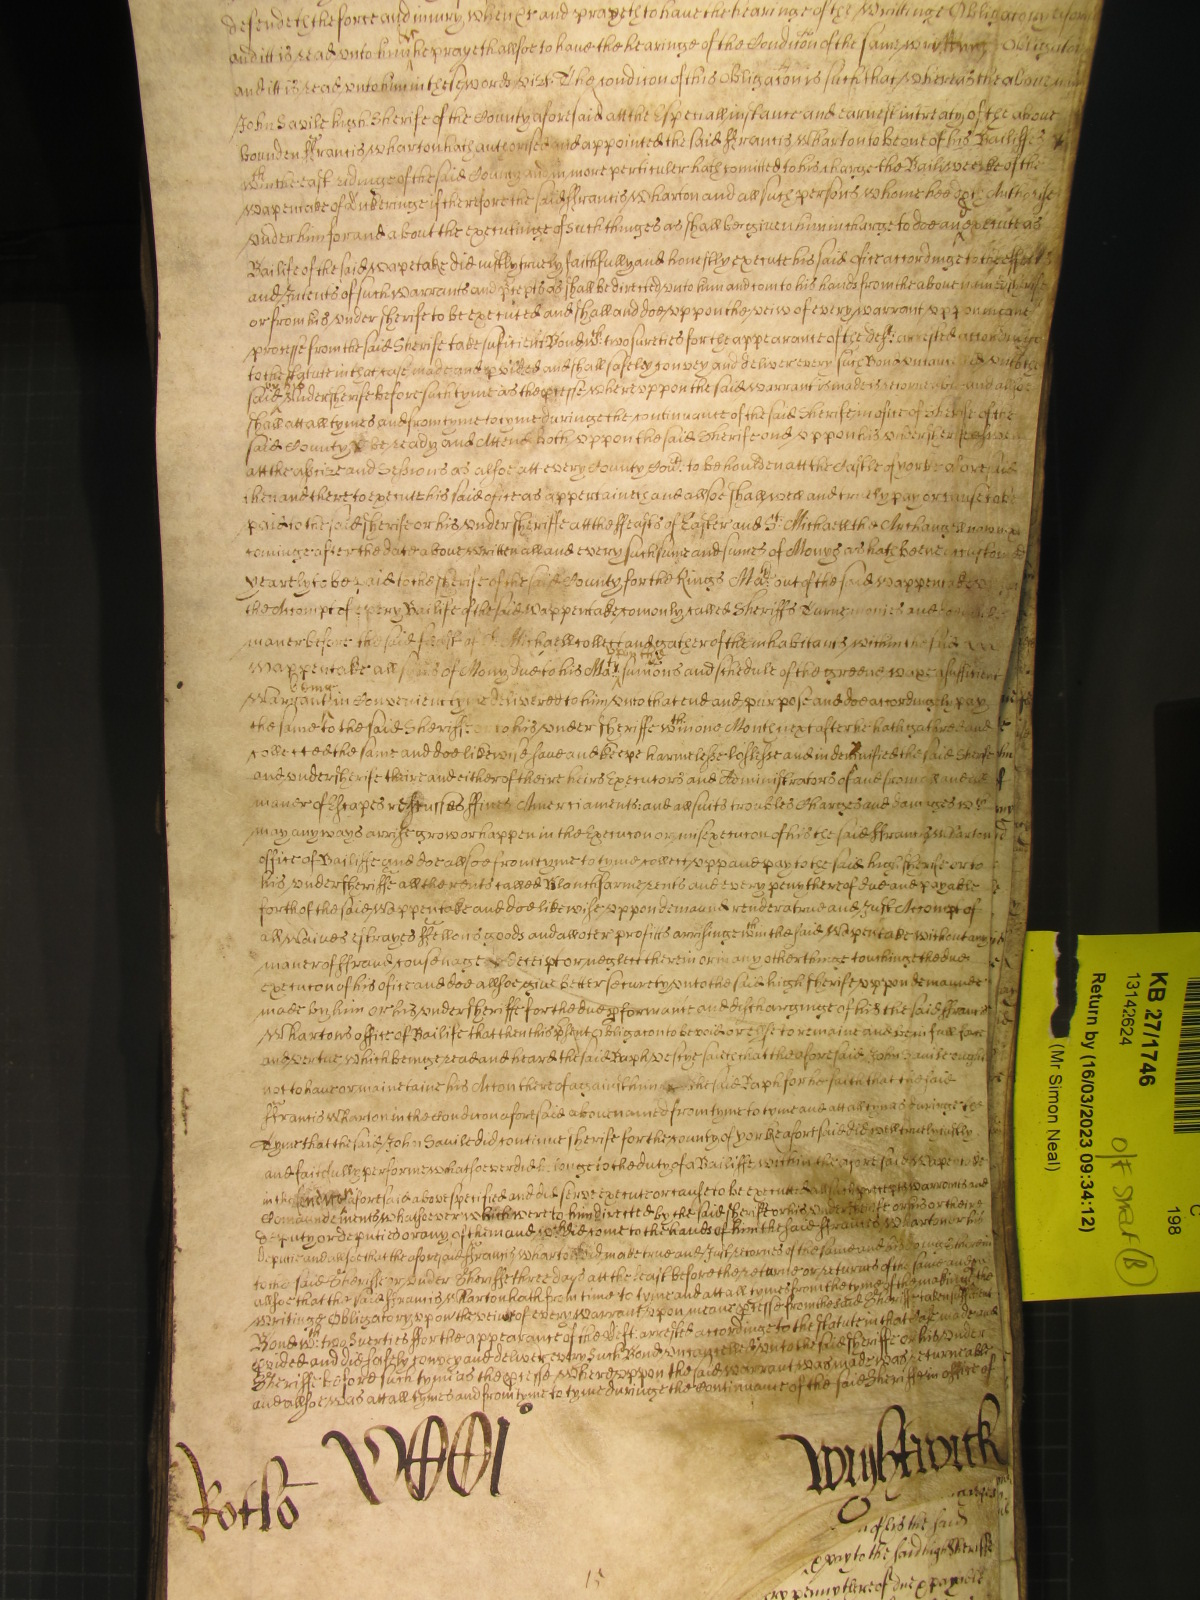 defendeth the force and injury when &c and prayeth to have the hearinge of the Writtinge Obligatory
and itt is read unto him he prayeth allsoe to have the hearinge of the Condicon of the same writtinge Obligatory
and it is read unto him in these words vizt The condicon of this Obligacon is such that whereas the above
John Savile high Sherife of the County aforesaid att the Espetiall instance and earnest intreaty of the above
bounden ffrancis Wharton hath authorised and appointed the said ffrancis Wharton to be one of his Bailiffes
wthin the east ridinge of the said County and in more perticuler hath comitted to his charge the Bailyweeke of the
Wapentake of if therefore the said ffrancis Wharton and all such persons whome hee Authorise
under him for and about the executinge of such thinges as shall be given him in charge to doe and execute as
Bailife of the said Wapetake did justly truely faithfully and honestly execute his said office accordinge to the effects
and Intents of such warrants and precepts as shall be directed unto him and com to his hands from the above
or from his under sherife to be executed and shall and doe uppon the veiw of every warrant uppon meane
processe from the said Sherife take suficient Bond wth two sureties for the appearance of the deft arrested accordinge
to the statute in that case made and provided and shall safely convey and deliver every such Bond unto the
said undersherife before such tyme as the processe whereuppon the said warrant is made is retornable and allsoe
shall att all tymes and from tyme to tyme duringe the continuance of the said Sherife in office of Sherife of the
said County be ready and Attend both uppon the said Sherife and uppon his undersherife
att the assize and Sessions as alsoe att every County Court to be houlden att the Castle of yorke aforesaid
then and there to execute his said office as appertaineth and allsoe shall well and truely pay or cause to be
paid to the said sherife or his undersheriffe att the ffeasts of Easter and St Michaell the Archangell
cominge after the date above written all and every such sume and sumes of Monys as hath beene accustomed
yearely to be paid to the sherife of the said County for the Kings Matie out of the said wappentake
the Accompt of every Bailife of the said Wappentake comonly called Sheriffs Turne monies and
maner before the said feast of St Michaell collect and gather of the inhabitants within the said
Wappentake all sumes of Mony due to his Matie uppon the sumons and schedule of the greene wax
Warrant beinge in Convenient tyme delivered to him unto that end and purpose and doe accordingely pay
the same to the said Sheriffe or to his under sheriffe within one Month next after he hath gathered and
collected the same and doe likewise save and keepe harmelesse losslesse and indemnified the said Sherife
and undersherife theire and either of theire heirs Executors and Administrators of and from all and all
maner of Escapes rescusses ffines Amerciaments and all suits troubles Charges and damages wch
may any ways arrise grow or happen in the Execucon or misexecucon of his the said ffrancis Wharton
office of Bailiffe and doe allsoe from tyme to tyme collect upp and pay to the said high sherife or to
his undersheriffe all the rents called Blanch farme rents and every peny thereof due and payable
forth of the said Wappentake and doe likewise uppon demaund render a true and Just Accompt of
all Waives estrayes ffellons goods and all oter profitts arrisinge wthin the said Wapentake without any
maner of ffraud cousenage deceipt or neglect therein or in any other thinge touchinge the due
execucon of his office and doe allsoe give better securety unto the said high sherife uppon demaunde
made by him or his undersheriffe for the due performance and discharginge of his the said ffrancis
Whartons office of Bailife that then this present Obligacon to be void or else to remaine and be in full force
and vertue Which beinge read and heard the said Raph saith that the aforesaid John Savile ought
not to have or maintaine his Accon thereof against him the said Raph for he saith that the said
ffrancis Wharton in the Condicon aforesaid above named from tyme to tyme and att all tymes duringe the
Tyme that the said John Savile did continue sherife for the county of yorke aforesaid did well truely
and faithfully performe whatsoever did belonge to the duty of a Bailiffe within the aforesaid Wapentake
in the Condicon aforesaid above specified and did serve execute or cause to be executed all such precepts warrants and
Comaundements whatsoever which were to him directed by the said sheriffe or his undersheriffe or his or theire
deputy or deputies or any of them and wch did come to the hands of him the said ffrancis Wharton or his
deputie and allsoe that the aforesaid ffrancis Wharton did make true and Just retornes of the same
to the said Sheriffe or under Sheriffe three days att the least before the retorne or returns of the same and
allsoe that the said ffrancis Wharton hath from time to tyme and att all tymes from the tyme of the makinge of the
Writinge Obligatory upon the veiw of every Warrant upon meane processe from the said Sheriffe taken sufficient
Bond wth two suerties for the appearance of the deft arrested accordinge to the statute in that case made and
provided and did safely convey and deliver every such Bond unto the said sheriffe or his under
Sheriffe before such tyme as the processe whereuppon the said warrant was made was returneable
and allsoe was att all tymes and from tyme to tyme duringe the Continuance of the said Sheriffe in office of
Rotlo
Wightwick
of his the said
pay to the said high Sheriffe
ery penny thereof due & payable
15
KB 27/1746
13142624
Return by (16/03/2023 09:34:12)
(Mr Simon Neal)
C
198
O/F Strat (B)